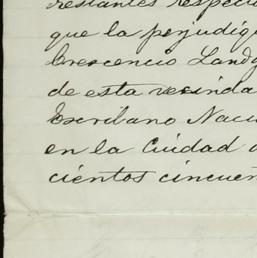 restantes respec
que la perjudiqu
Crescencio Landa
de esta vecinda
Escribano Naci
en la Ciudad d
cientos cincuen